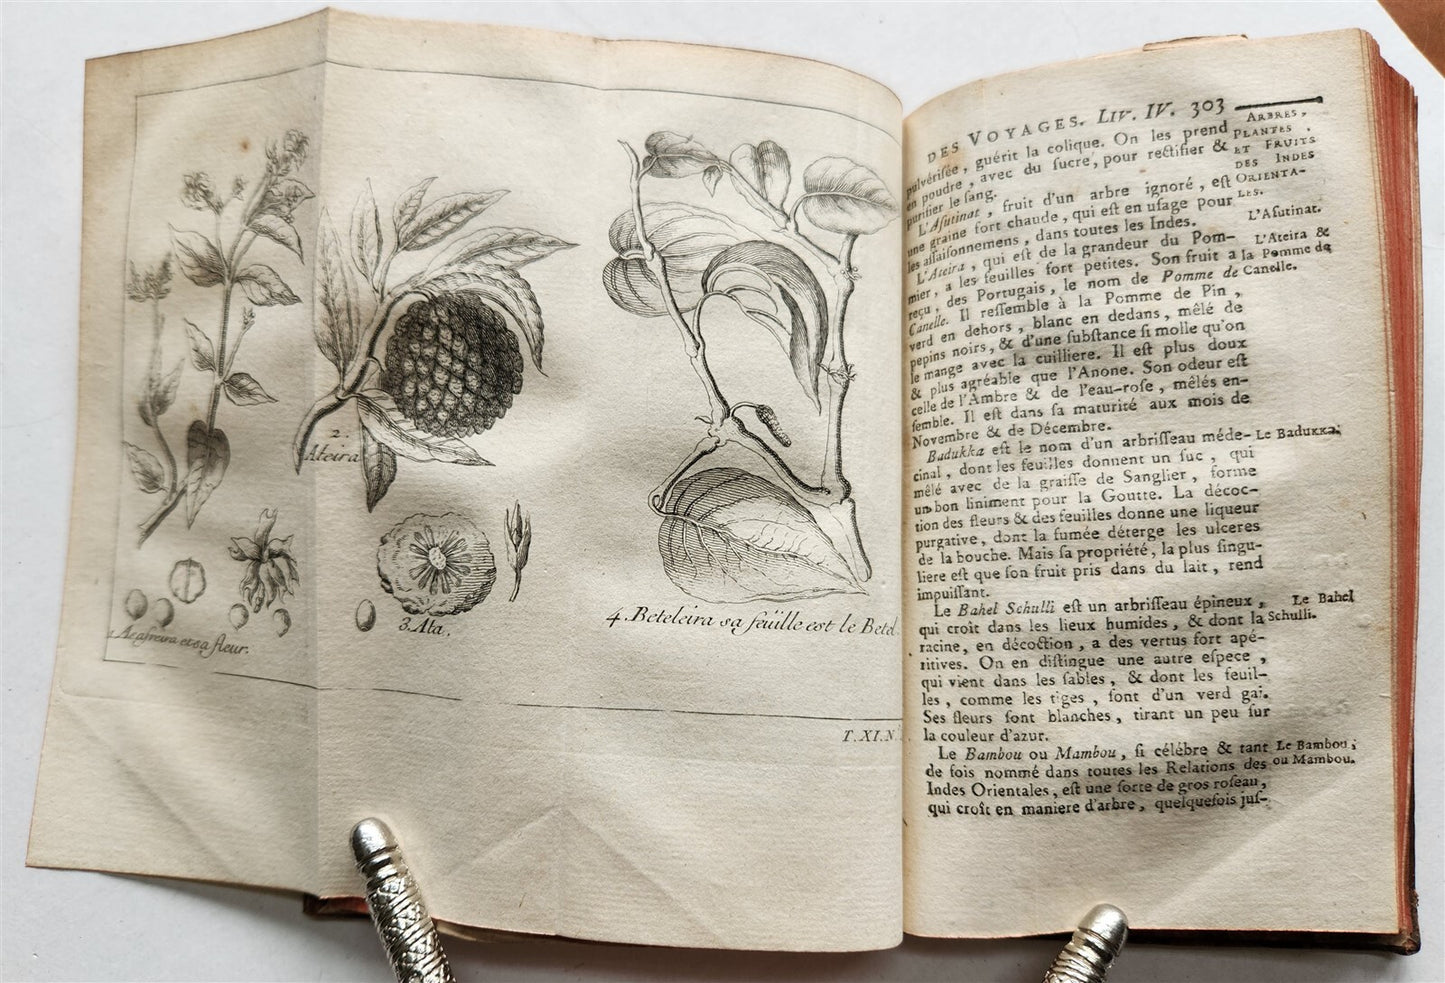 2.
Ateira
1. Acafreira et sa fleur.
3. Ata.
4. Beteleira sa feüille est le Betel.
T. XI. N.
DES VOYAGES. LIV. IV. 303
pulvérisée, guérit la colique. On les prend
en poudre, avec du sucre, pour rectifier &
purifier le sang.
L'Asutinat, fruit d'un arbre ignoré, est
une graine fort chaude, qui est en usage pour
les assaisonnemens, dans toutes les Indes.
L'Ateira, qui est de la grandeur du Pom-
mier, a les feuilles fort petites. Son fruit a
reçu, des Portugais, le nom de Pomme de
Canelle. Il ressemble à la Pomme de Pin,
verd en dehors, blanc en dedans, mêlé de
pepins noirs, & d'une substance si molle qu'on
le mange avec la cuilliere. Il est plus doux
& plus agréable que l'Anone. Son odeur est
celle de l'Ambre & de l'eau-rose, mêlés en-
semble. Il est dans sa maturité aux mois de
Novembre & de Décembre.
Badukka est le nom d'un arbrisseau méde-
cinal, dont les feuilles donnent un suc, qui
mêlé avec de la graisse de Sanglier, forme
un bon liniment pour la Goutte. La décoc-
tion des fleurs & des feuilles donne une liqueur
purgative, dont la fumée déterge les ulceres
de la bouche. Mais sa propriété, la plus singu-
liere est que son fruit pris dans du lait, rend
impuissant.
Le Bahel Schulli est un arbrisseau épineux,
qui croît dans les lieux humides, & dont la
racine, en décoction, a des vertus fort apé-
ritives. On en distingue une autre espece,
qui vient dans les sables, & dont les feuil-
les, comme les tiges, sont d'un verd gai.
Ses fleurs sont blanches, tirant un peu sur
la couleur d'azur.
Le Bambou ou Mambou, si célébre & tant
de fois nommé dans toutes les Relations des
Indes Orientales, est une sorte de gros roseau,
qui croît en maniere d'arbre, quelquefois jus-
ARBRES,
PLANTES,
ET FRUITS
DES INDES
ORIENTA-
LES.
L'Asutinat.
L'Ateira &
la Pomme de
Canelle.
Le Badukka.
Le Bahel
Schulli.
Le Bambou,
ou Mambou.